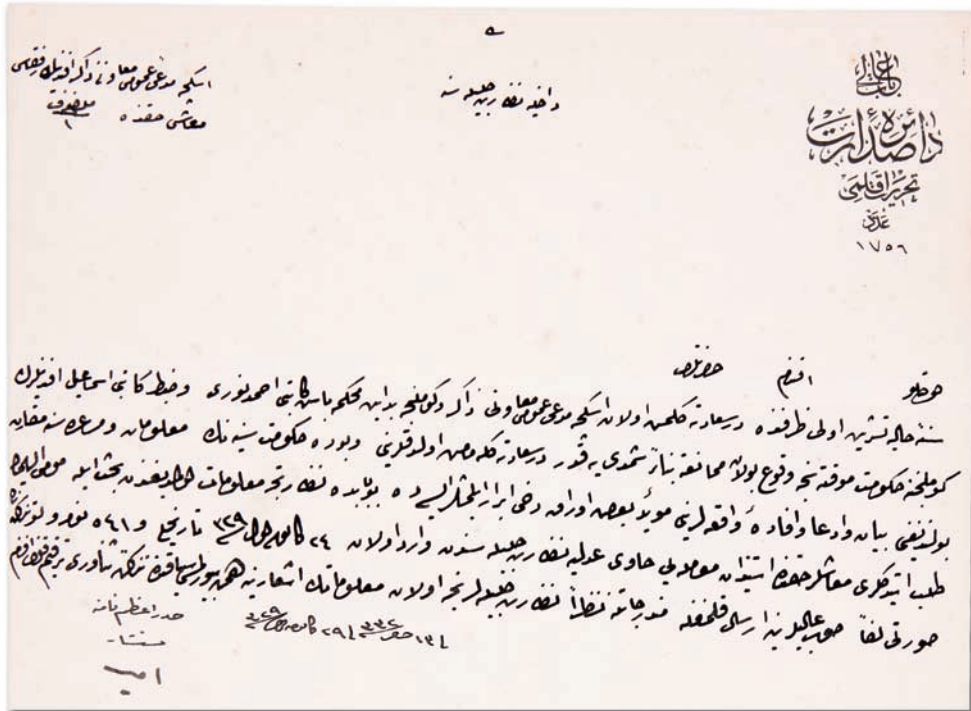 باب عالی
دائرۀ صدارت
تحریرات قلمی
عدد
١٧٥٦
داخلیه نظارت جلیله سنه
اسکچه مدعی عمومی معاونی ذاکر افندینك
معاشی حقنده
ملفوف
١
دولتلو افندم حضرتلری
سنۀ حالیه تشرین اولی ظرفنده درسعادته کلمش اولان اسکچه مدعی عمومی معاونی ذاکر وکوملجنه بدایت محکمه باش کاتبی احمد نوری وضبط کاتبی اسماعیل افندیلرك
کوملجنه حکومت موقته سنجه وقوع بولان ممانعته بناءً شمدی یه قدر درسعادته کله مامش اولدقلرینی وبوده حکومت سنیه نك معلومات ومساعده سنه مقارن
بولندیغنی بیان وادعا وافادۀ واقعه لرینی مؤید بعض اوراق دخی ابراز ایله بوبابده نظارتجه معلومات بحث ایله
طلب ایتدکلری معاشلر حقنده استیذان معامله یی حاوی عدلیه نظارت جلیله سندن وارد اولان ٢٤ کانون اول ٣٢٩ تاریخلی و ٥٤١ نومرولو تذکره نك
صورتی لفاً صوب عالیلرینه ارسال قلنمغله مندرجاتنه نظراً نظارت جلیله لرنجه اولان معلوماتك اشعارینه همت بیورلمسی سیاقنده تذکرۀ ثناوری ترقیم قلندی افندم
فی ١٣ صفر ٣٣٢ فی ٢٩ کانون اول ٣٢٩
صدر اعظم نامنه
مستشار
امین